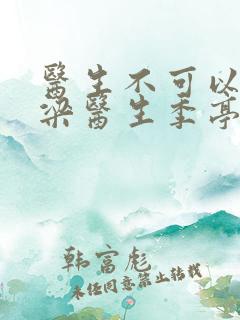 醫生不可以
梁醫生季亭
韩富彪
未经同意禁止转载